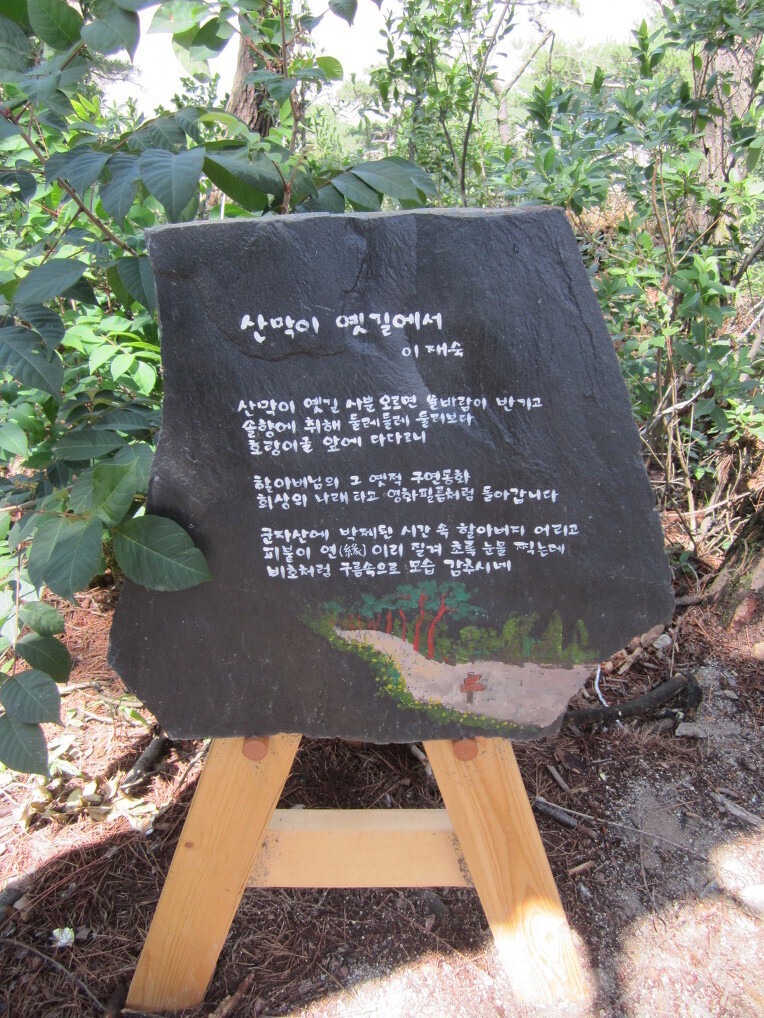 산막이 옛길에서
이재숙
산막이 옛길 사뿐 오르면 솔바람이 반기고
솔향에 취해 둘레둘레 둘러보다
호랑이굴 앞에 다다르니
할아버님의 그 옛적 구연동화
회상의 나래 타고 영화필름처럼 돌아갑니다
군자산에 박제된 시간 속 할아버지 어리고
피붙이 연(緣) 이리 질겨 초록 눈물 찍는데
비호처럼 구름속으로 모습 감추시네